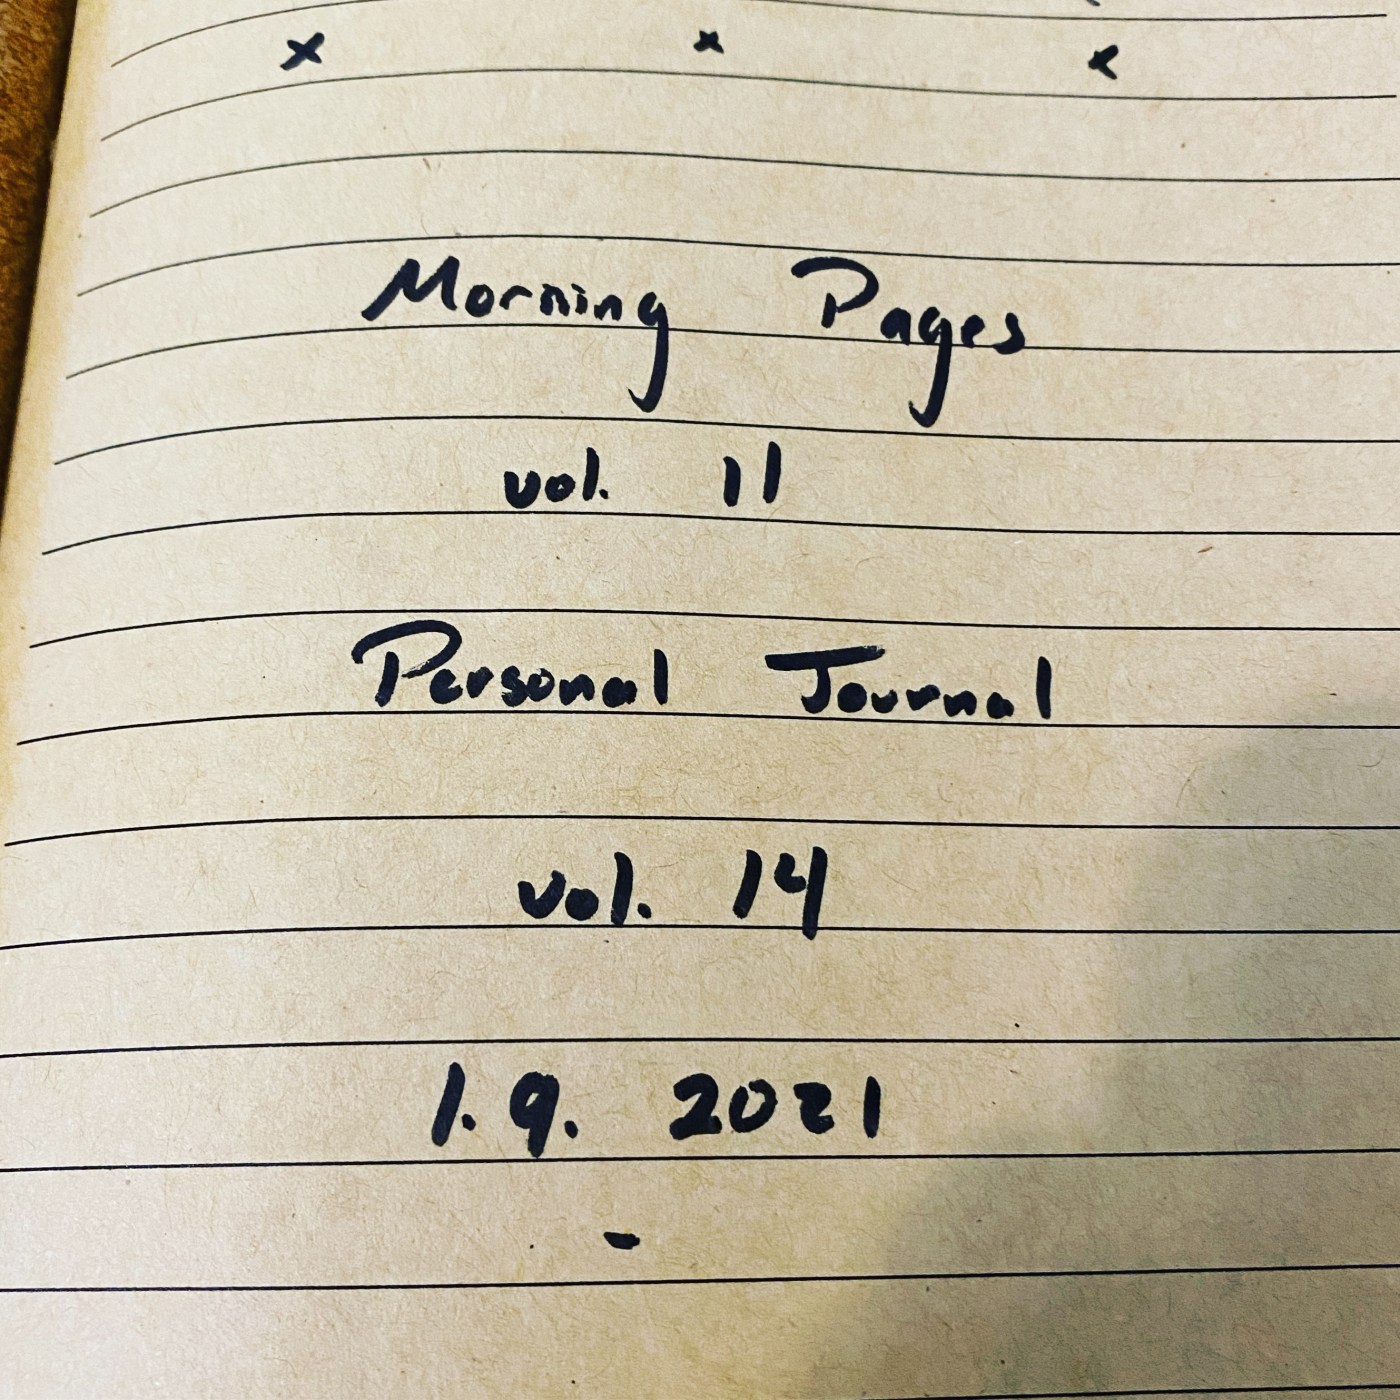 x x x
Morning Pages
vol. 11
Personal Journal
vol. 14
1.9. 2021
-